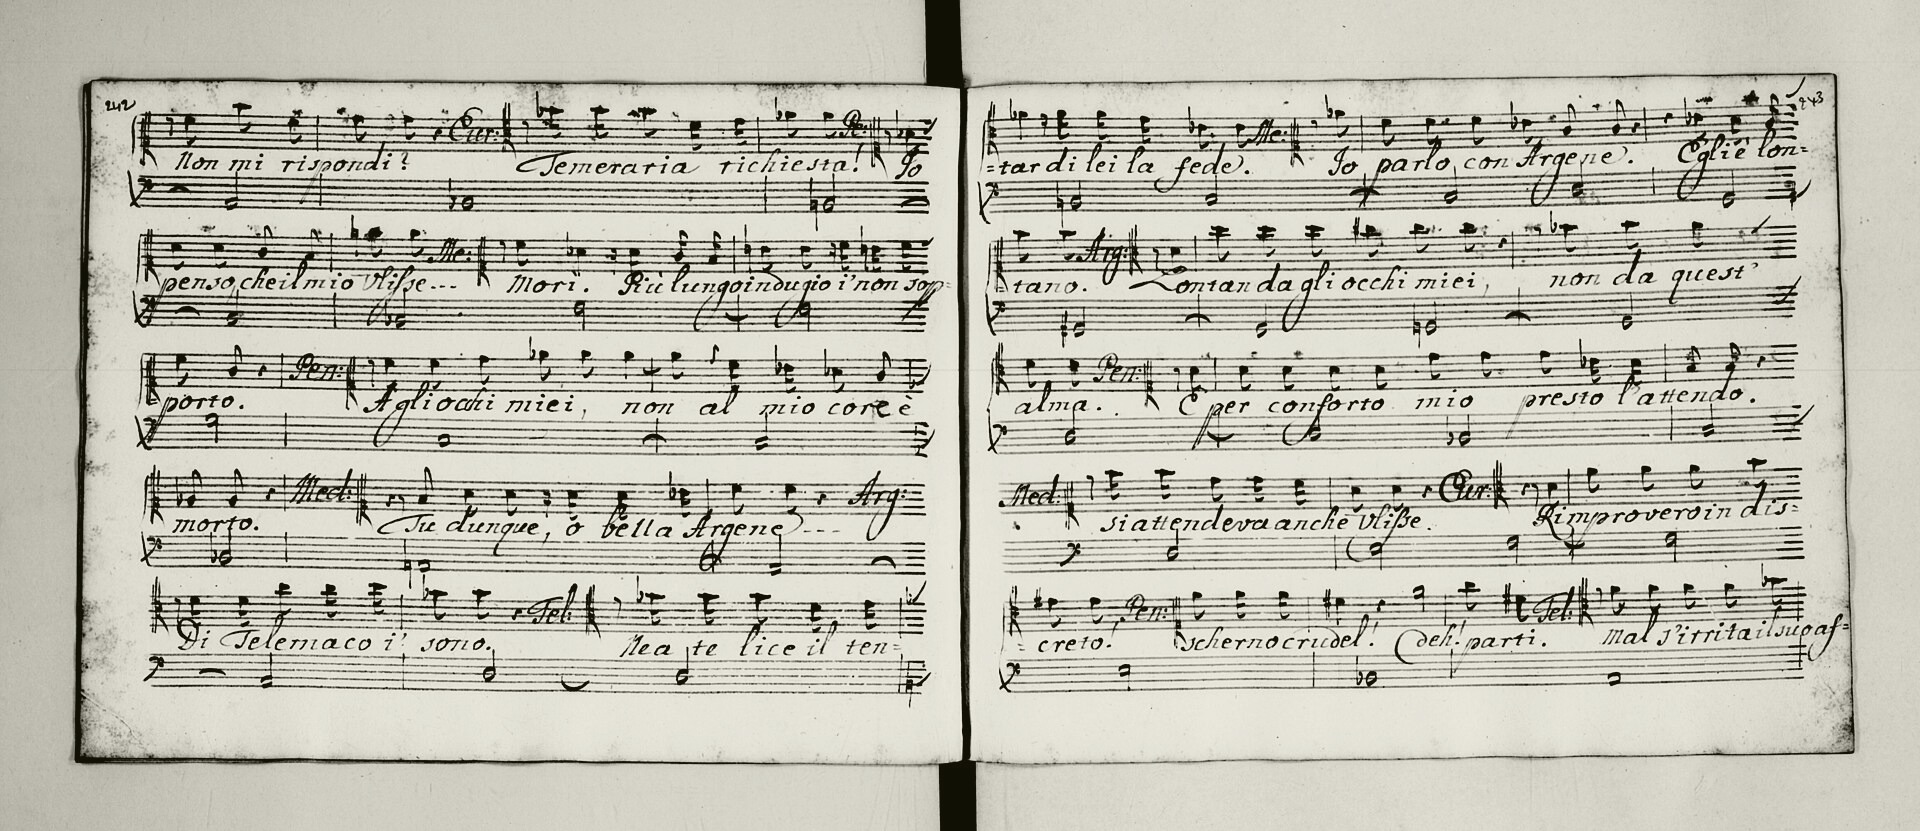 242
Non mi rispondi? Eur: Temeraria richiesta! Pe: Io
penso che il mio Ulisse--- Me: Mori. Più lungo indugio i' non sop=
porto. Pen: Agli occhi miei, non al mio core è
morto. Med: Tu dunque, o bella Argene --- Arg:
Di Telemaco i' sono. Tel: Ne a te lice il ten=
243
=tar di lei la fede. Me: Io parlo con Argene. Egli è lon=
tano. Arg: Lontan dagli occhi miei, non da quest'
alma. Pen: E per conforto mio presto l'attendo.
Med: si attendeva anche Ulisse. Eur: Rimprovero in dis=
=creto! Pen: scherno crudel! deh! parti. Tel: Mal s'irrita il suo af=